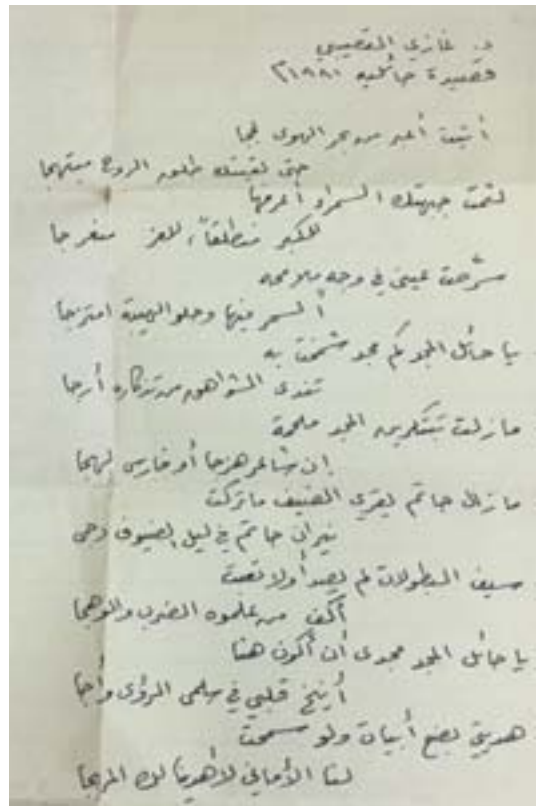 د. غازي القصيبي
قصيدة حائلية ١٩٨١م
أتيت أعبر من بحر الهوى لججا
حتى لقيتك طلق الروح مبتهجا
لثمت جبهتك السمراء أعرفها
للكبر منطلقاً، للعز منعرجا
سرّحت عيني في وجه ملامحه
السحر فيها وحلو الهيبة امتزجا
يا حائل المجد كم مجد شمخت به
تندى الشواهق من تذكاره أرجا
مازلت تبتكرين المجد ملحمة
إن شاعر هزجا أو فارس لهجا
مازال حاتم يقري الضيف ماتركت
نيران حاتم في ليل الضيوف دجى
سيف البطولات لم يصدأ ولا تعبت
أكف من علموه الضرب والوهجا
يا حائل المجد مجدي أن أكون هنا
أنيخ قلبي في سلمى الرؤى وأجا
هديتي بضع أبيات ولو سمحت
لنا الأماني لأهدينا لك المهجا